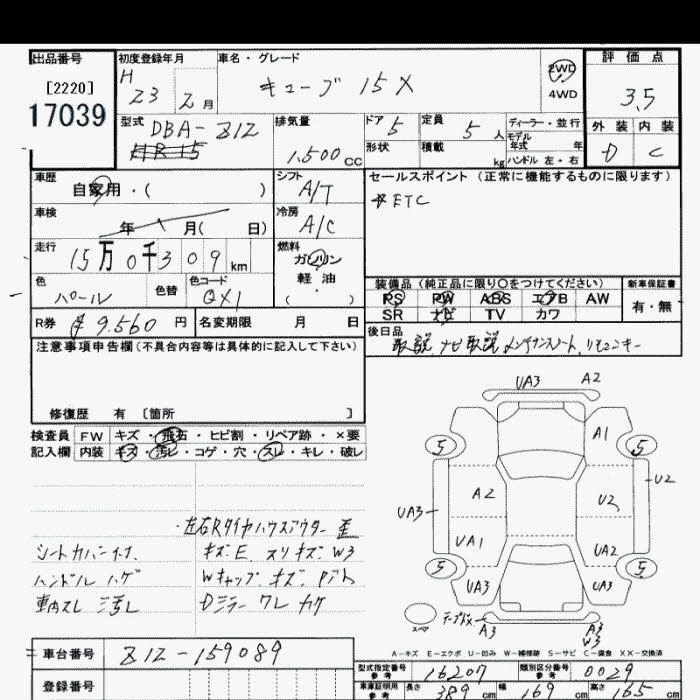 出品番号 初度登録年月 車名・グレード 評価点
[2220] H 23 2月 キューブ 15X 2WD 3.5
17039 4WD
型式 DBA-Z12 排気量 ドア 5 定員 5人 ディーラー・並行 外装 内装
1,500cc 形状 積載 kg モデル年式 年 D C
ハンドル 左・右
車歴 シフト セールスポイント (正常に機能するものに限ります)
自家用・( ) A/T ETC
車検 年 月( 日) 冷房 A/C
走行 15万0千309km 燃料 ガソリン
軽・油
( )
色 パール 色替 色コード QX1
装備品 (純正品に限り○をつけてください) 新車保証書
PS PW ABS エアB AW 有・無
SR ナビ TV カワ
R券 ¥9,560円 名変期限 月 日
後日品
取説 ナビ取説 メンテナンスノート、リモコンキー
注意事項申告欄(不具合内容等は具体的に記入して下さい)
修復歴 有 [箇所 ]
検査員 FW キズ・飛石・ヒビ割・リペア跡・×要
記入欄 内装 キズ・汚レ・コゲ・穴・スレ・キレ・破レ
UA3 A2
A1
5 5
A2 U2 U2
UA3
UA1 UA2
5 5
UA3 UA3
スペア A3 A3
W3
・左右Rタイヤハウスアウター歪
シートカバー
キズE スリキズ W3
ハンドル ハゲ Wキャップ キズ
車内スレ 汚レ Dミラー ワレ カケ
A-キズ E-エクボ U-凹み W-補修跡 S-サビ C-腐食 XX-交換済
車台番号 Z12-159089
型式指定番号 参考 16207 類別区分番号 参考 0029
登録番号
車庫証明用 参考 長さ 389cm 幅 169cm 高さ 165cm